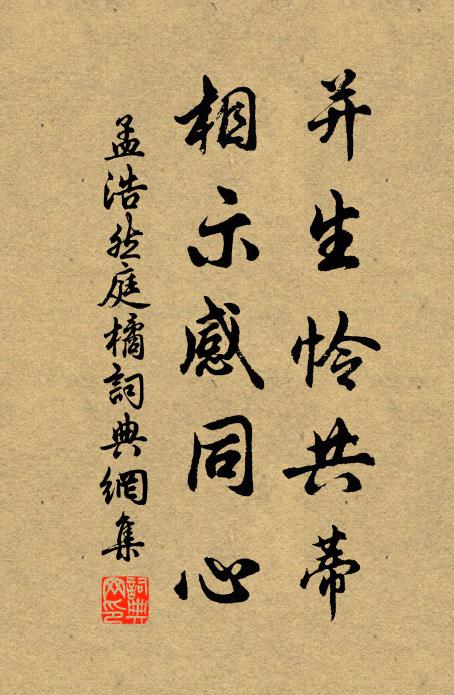 并生怜共蒂
相示感同心
孟浩然庭橘詞典網集
詞典
网印